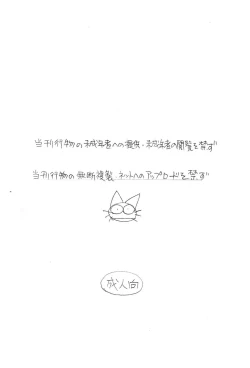 当刊行物の未成年者への提供・未成年者の閲覧を禁ず
当刊行物の無断複製、ネットへのアップロードを禁ず
成人向